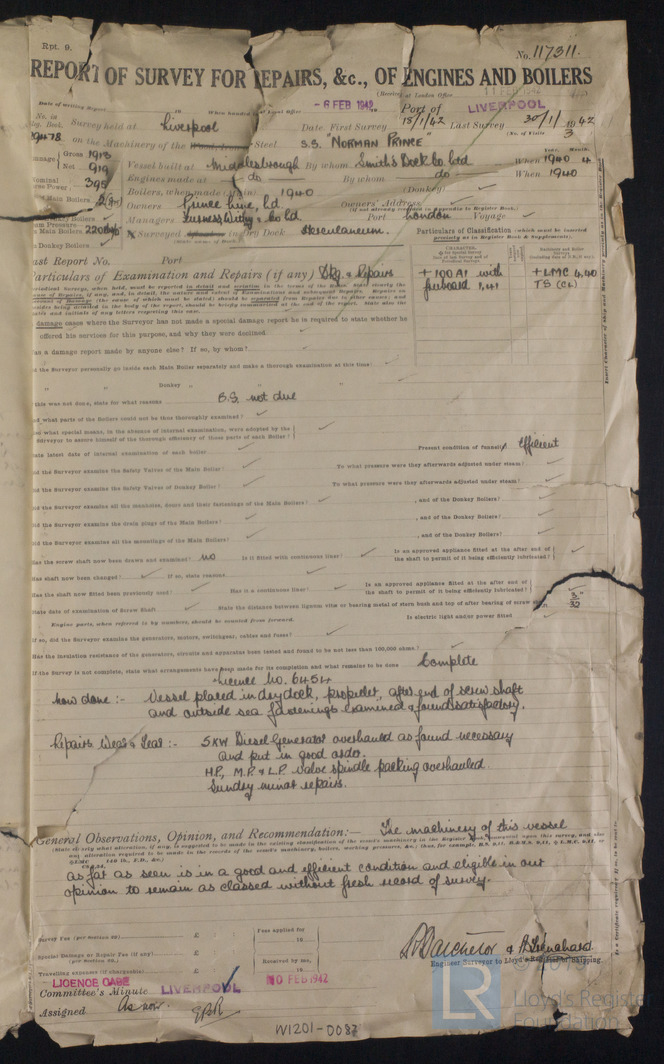 Rpt. 9.
No. 117311.
REPORT OF SURVEY FOR REPAIRS, &c., OF ENGINES AND BOILERS
(Received at London Office 11 FEB 1942
Date of writing Report 19 When handed in at Local Office - 6 FEB 1942 Port of LIVERPOOL
No. in Survey held at Liverpool Date First Survey 18/1/42 Last Survey 30/1/1942
Reg. Book. (No. of Visits 3
on the Machinery of the Steel S.S. "NORMAN PRINCE"
Gross 1913
Net 919 Vessel built at Middlesbrough By whom Smith's Dock Co. Ltd When 1940 4
Engines made at do By whom do When 1940
395
Boilers, when made (Main) 1940 (Donkey)
Main Boilers 2 Owners Prince Line, Ld. Owners' Address
(If not already recorded in Appendix to Register Book.)
Managers Furness Withy & Co Ld Port London Voyage
Main Boilers 220 lbs If Surveyed in Dry Dock Herculaneum.
Donkey Boilers
Particulars of Classification (which must be inserted precisely as in Register Book & Supplements).
Last Report No. Port
Particulars of Examination and Repairs (if any) Dkg. & Repairs
+100A1 with freeboard 1,41
+LMC 4,40
TS (CL)
damage cases where the Surveyor has not made a special damage report he is required to state whether he
offered his services for this purpose, and why they were declined
Was a damage report made by anyone else? If so, by whom?
Did the Surveyor personally go inside each Main Boiler separately and make a thorough examination at this time
Donkey
If this was not done, state for what reasons B.S. not due
And what parts of the Boilers could not be thus thoroughly examined?
And what special means, in the absence of internal examination, were adopted by the
Surveyor to assure himself of the thorough efficiency of those parts of each Boiler?
State latest date of internal examination of each boiler Present condition of funnel(s) Efficient
Did the Surveyor examine the Safety Valves of the Main Boiler? To what pressure were they afterwards adjusted under steam?
Did the Surveyor examine the Safety Valves of Donkey Boiler? To what pressure were they afterwards adjusted under steam?
Did the Surveyor examine all the manholes, doors and their fastenings of the Main Boilers? , and of the Donkey Boilers?
Did the Surveyor examine the drain plugs of the Main Boilers? , and of the Donkey Boilers?
Did the Surveyor examine all the mountings of the Main Boilers? , and of the Donkey Boilers?
Has the screw shaft now been drawn and examined? no Is it fitted with continuous liner? Is an approved appliance fitted at the after end of
the shaft to permit of it being efficiently lubricated?
Has shaft now been changed? If so, state reasons
Has the shaft now fitted been previously used? Has it a continuous liner? Is an approved appliance fitted at the after end of
the shaft to permit of it being efficiently lubricated?
State date of examination of Screw Shaft State the distance between lignum vitæ or bearing metal of stern bush and top of after bearing of screw 3/32
Engine parts, when referred to by numbers, should be counted from forward. Is electric light and/or power fitted
If so, did the Surveyor examine the generators, motors, switchgear, cables and fuses?
Has the insulation resistance of the generators, circuits and apparatus been tested and found to be not less than 100,000 ohms?
If the Survey is not complete, state what arrangements have been made for its completion and what remains to be done Complete
Licence No. 6454
Now done :- Vessel placed in drydock, propeller, after end of screw shaft
and outside sea fastenings examined & found satisfactory.
Repairs Wear & Tear :- 5KW Diesel Generator overhauled as found necessary
and put in good order.
H.P., M.P. & L.P. valve spindle packing overhauled.
Sundry minor repairs.
General Observations, Opinion, and Recommendation:— The machinery of this vessel
as far as seen is in a good and efficient condition and eligible in our
opinion to remain as classed without fresh record of survey.
Survey Fee (per section 29) £ Fees applied for
19
Special Damage or Repair Fee (if any) £
(per section 29.) Received by me,
Travelling expenses (if chargeable) £ 19
Engineer Surveyor to Lloyd's Register of Shipping.
LICENCE CASE
Committee's Minute LIVERPOOL 10 FEB 1942
Assigned As now.
W1201-0087
LR
Lloyd's Register
Foundation